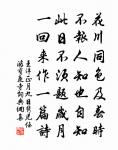 花川同色及春時
不報人知也自知
此日不須題歲月
一回來作一篇詩